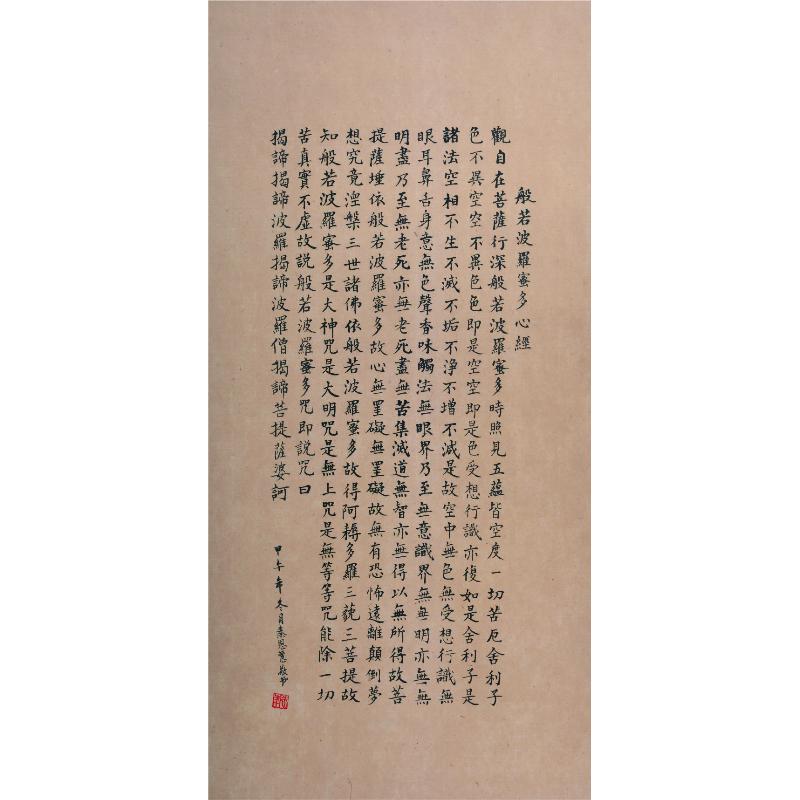 般若波羅蜜多心經
觀自在菩薩行深般若波羅蜜多時照見五蘊皆空度一切苦厄舍利子
色不異空空不異色色即是空空即是色受想行識亦復如是舍利子是
諸法空相不生不滅不垢不淨不增不減是故空中無色無受想行識無
眼耳鼻舌身意無色聲香味觸法無眼界乃至無意識界無無明亦無無
明盡乃至無老死亦無老死盡無苦集滅道無智亦無得以無所得故菩
提薩埵依般若波羅蜜多故心無罣礙無罣礙故無有恐怖遠離顛倒夢
想究竟涅槃三世諸佛依般若波羅蜜多故得阿耨多羅三藐三菩提故
知般若波羅蜜多是大神咒是大明咒是無上咒是無等等咒能除一切
苦真實不虛故說般若波羅蜜多咒即說咒曰
揭諦揭諦波羅揭諦波羅僧揭諦菩提薩婆訶
甲午年冬月秦恩慧敬书